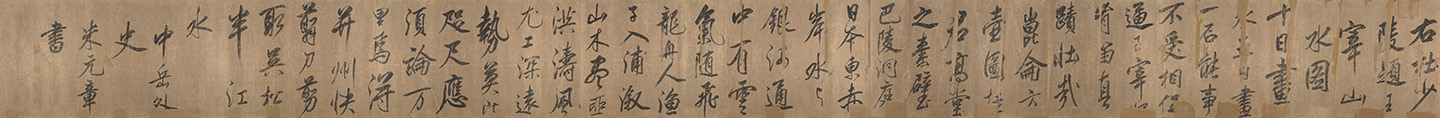 右杜少
陵題王
宰山
水圖
十日畫
水五日畫
一石能事
不受相促
逼王宰始
肯留真
蹟壯哉
崑崙方
壺圖挂
君高堂
之素壁
巴陵洞庭
日本東赤
岸水与
銀河通
中有雲
氣隨飛
龍舟人漁
子入浦漵
山木盡亞
洪濤風
尤工深遠
勢莫比
咫尺應
須論万
里焉得
并州快
剪刀剪
取吳松
半江
水
中岳外
史
米元章
書